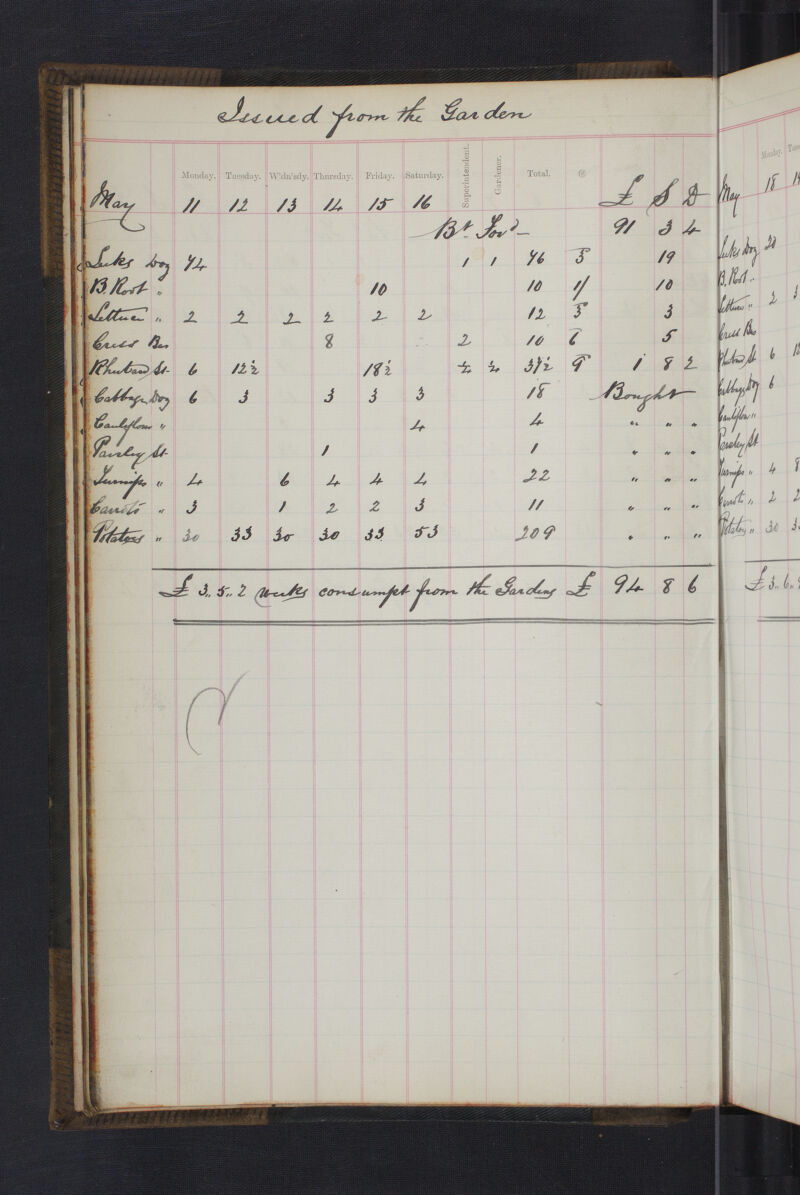 Issued from the Garden
Monday. Tuesday. W'dn'sdy. Thursday. Friday. Saturday. Superintendent. Gardener. Total. @
May 11 12 13 14 15 16 £ S D
Bt Ford 91 3 4
Leeks Doz 74 1 1 76 3 19
B. Root " 10 10 1/ 10
Lettuce " 2 2 2 2 2 2 12 3 3
Cress Bus 8 2 10 6 5
Rhubarb St 6 12½ 18½ ¼ ¼ 37½ 9 1 8 2
Cabbage Doz 6 3 3 3 3 18 Bought
Cauliflour " 4 4 " " "
Parsley St 1 1 " " "
Turnips " 4 6 4 4 4 22 " " "
Carrots " 3 1 2 2 3 11 " " "
Potatoes " 30 33 30 30 33 53 209 " " "
£ 3,, 5,, 2 weeks consumpt from the Gardens £ 94 8 6
Monday.
May 18
Leeks Doz 20
B. Root "
Lettuce " 2 3
Cress Bus
Rhubarb St 6
Cabbage Doz 6
Cauliflour "
Parsley St
Turnips " 4 8
Carrots " 2 2
Potatoes " 30
£ 3,, 6,,